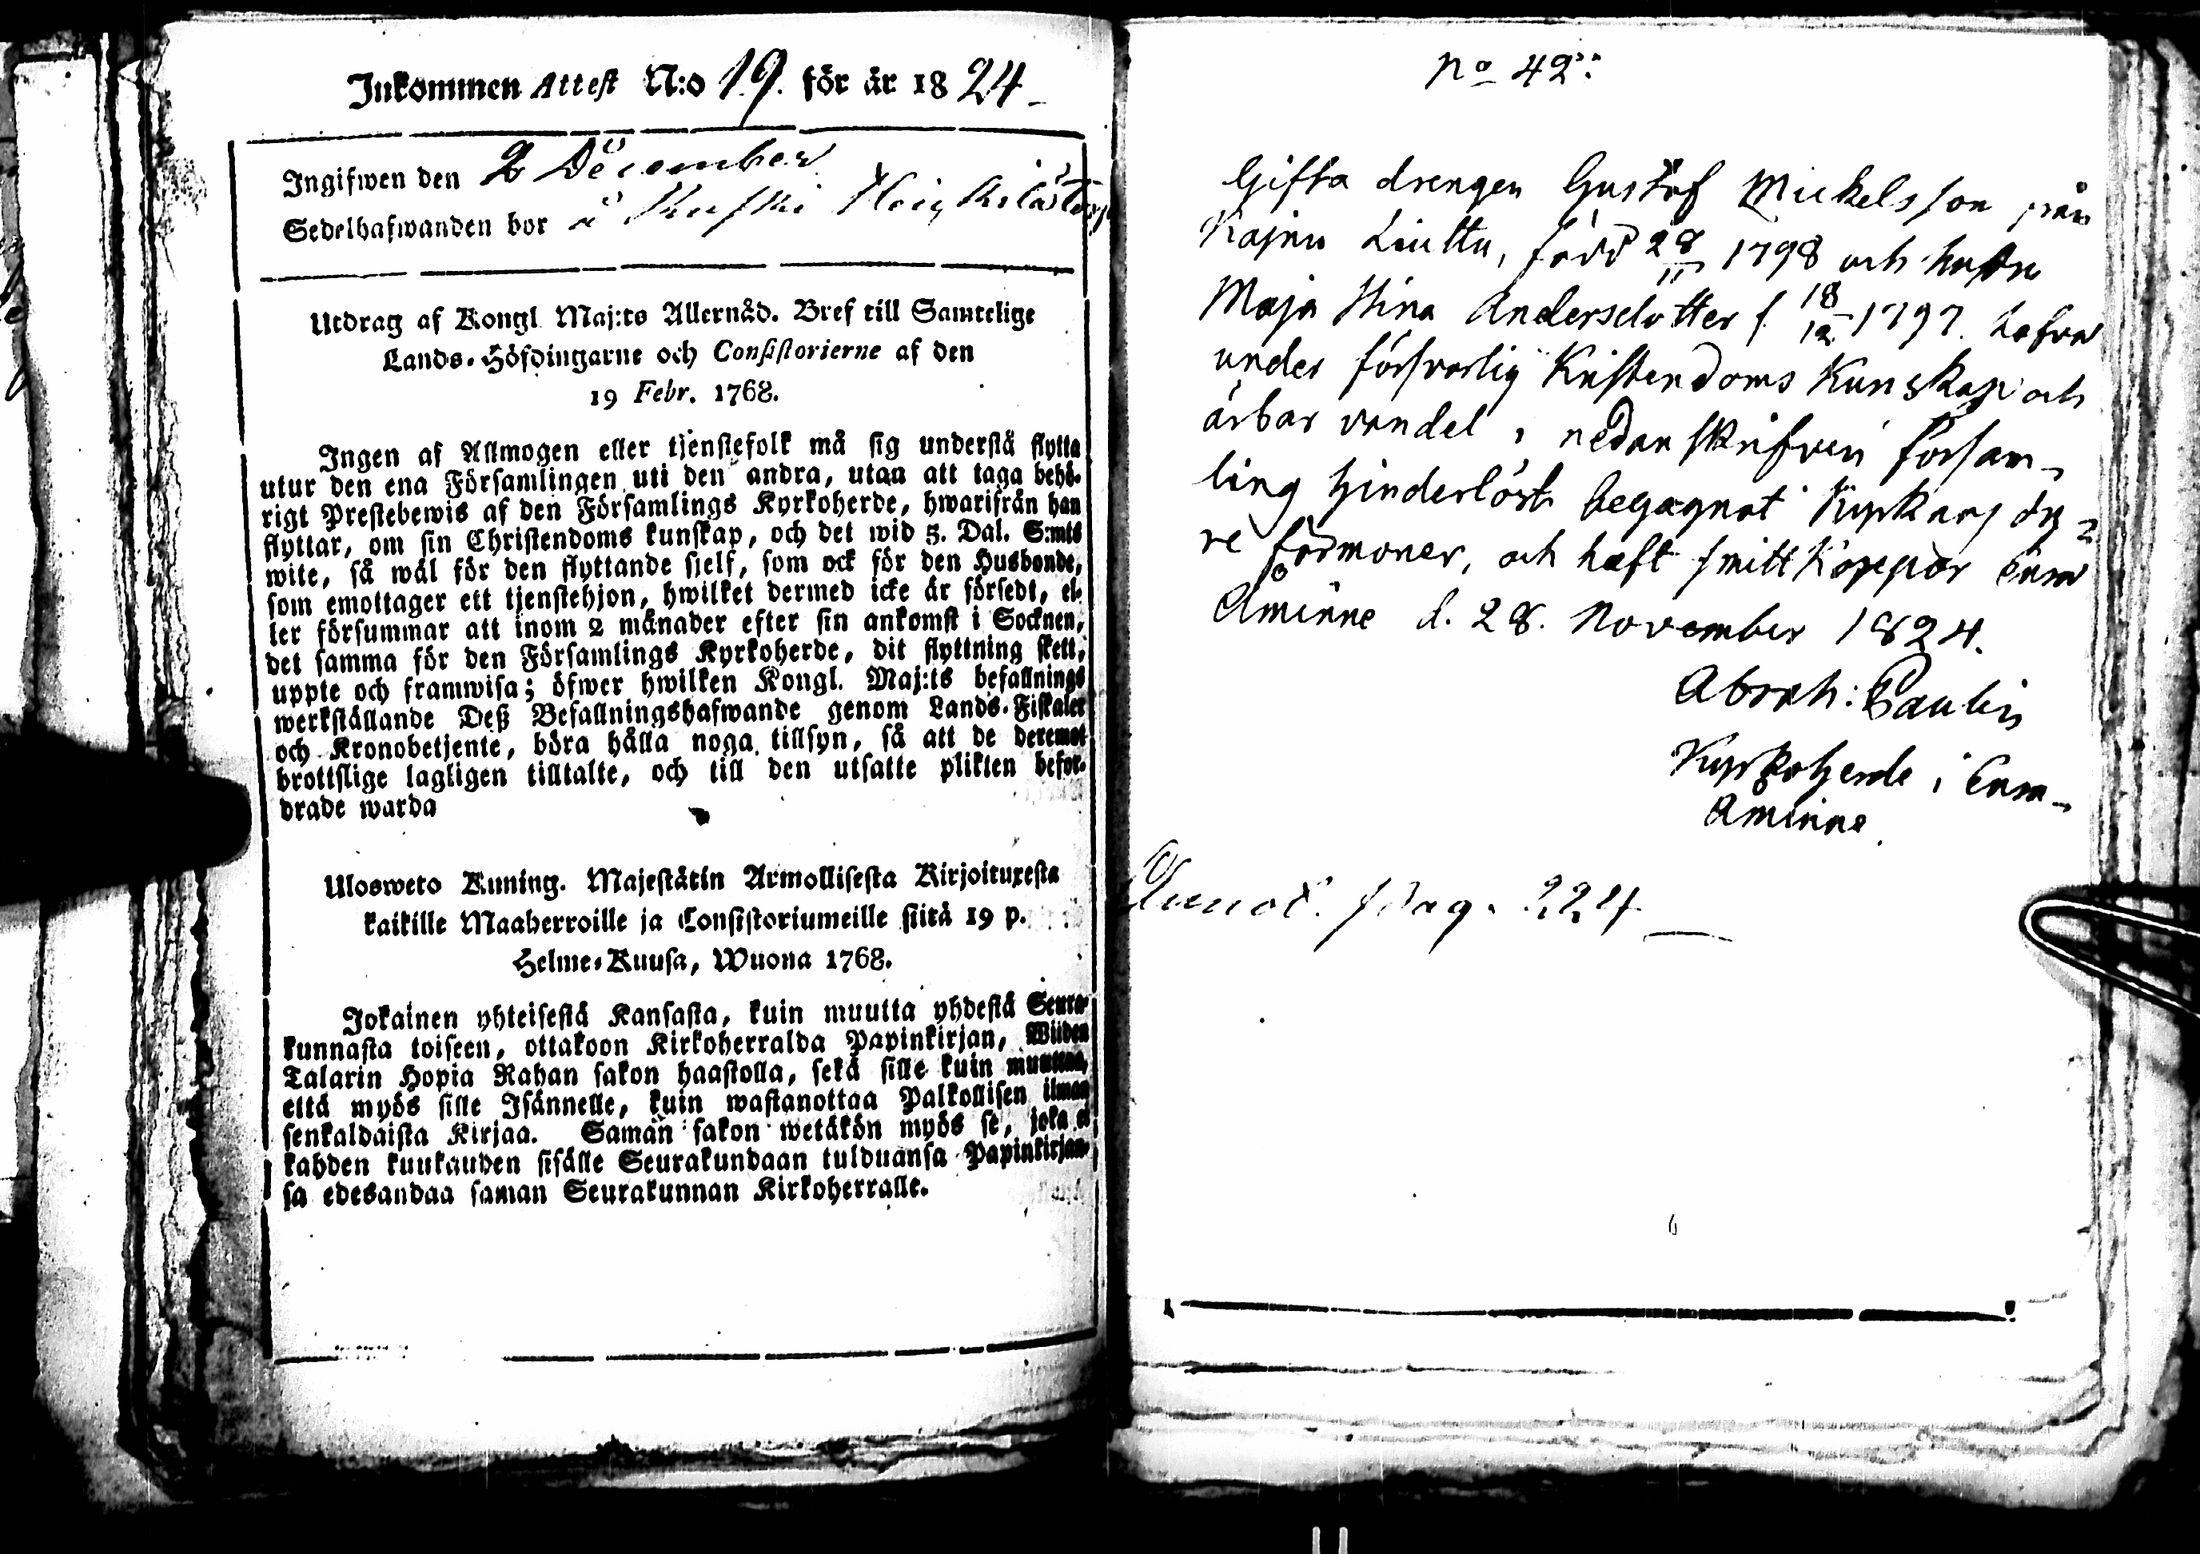 Inkommen Attest N:o 19. för år 1824
Ingifwen den 2 December
Sedelhafwanden bor å
Utdrag af Kongl Maj:ts Allernåd. Bref till Samtelige
Lands-Höfdingarne och Consistorierne af den
19 Febr. 1768.
Ingen af Allmogen eller tjenstefolk må sig understå flytta
utur den ena Församlingen uti den andra, utan att taga behö-
rigt Prestebewis af den Församlings Kyrkoherde, hwarifrån han
flyttar, om sin Christendoms kunskap, och det wid 5. Dal. S:mts
wite, så wäl för den flyttande sjelf, som ock för den Husbonde,
som emottager ett tjenstehjon, hwilket dermed icke är försedt, el-
ler försummar att inom 2 månader efter sin ankomst i Socknen,
det samma för den Församlings Kyrkoherde, dit flyttning skett,
uppte och framwisa; öfwer hwilken Kongl. Maj:ts befallnings
werkställande Deß Befallningshafwande genom Lands-Fiskaler
och Kronobetjente, böra hålla noga tillsyn, så att de deremot
brottslige lagligen tilltalte, och till den utsatte plikten befor-
drade warda
Ulosweto Kuning. Majestätin Armollisesta Kirjoituxesta
kaikille Maaherroille ja Consistoriumeille siitä 19 p.
Helme-Kuusa, Wuona 1768.
Jokainen yhteisestä Kansasta, kuin muutta yhdestä Seura-
kunnasta toiseen, ottakoon Kirkoherralda Papinkirjan, Wiiden
Talarin Hopia Rahan sakon haastolla, sekä sille kuin muuttaa,
että myös sille Isännelle, kuin wastanottaa Palkollisen ilman
senkaldaista Kirjaa. Samän sakon wetäkön myös se, joka ei
kahden kuukauden sisälle Seurakundaan tulduansa Papinkirjan-
sa edesandaa saman Seurakunnan Kirkoherralle.
No 42
Gifta drengen Gustaf Mickelsson från
Kajnu Liuttu, född 28/11 1798 och hustru
Maja Stina Andersdotter f. 18/12 1797. hafva
under försvarlig Kristendoms Kunskap och
ärbar vandel i nedanskrifven försam-
ling hinderlöst begagnat Kyrkans dy-
re förmoner, och haft smittkoppor Enm
Åminne d. 28. November 1824.
Abrah: Paulin
Kyrkoherde i Enm-
Åminne.
Annot. pag. 224